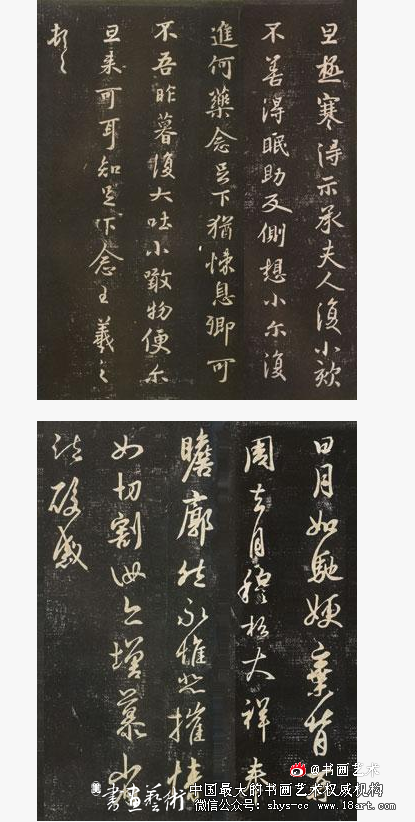 旦極寒得示承夫人復小欬
不善得眠助反側想小尔復
進何藥念足下猶悚息卿可
不吾昨暮復大吐小噉物便尔
旦来可耳知足下念王羲之
頓首
日月如馳嫂棄背
周去月穆松大祥奉
瞻廓然永惟悲摧情
如切割汝亦增慕省
疏酸感
@书画艺术
書畫藝術 中国最大的书画艺术权威机构
微信公众号：shys-cc www.18art.com